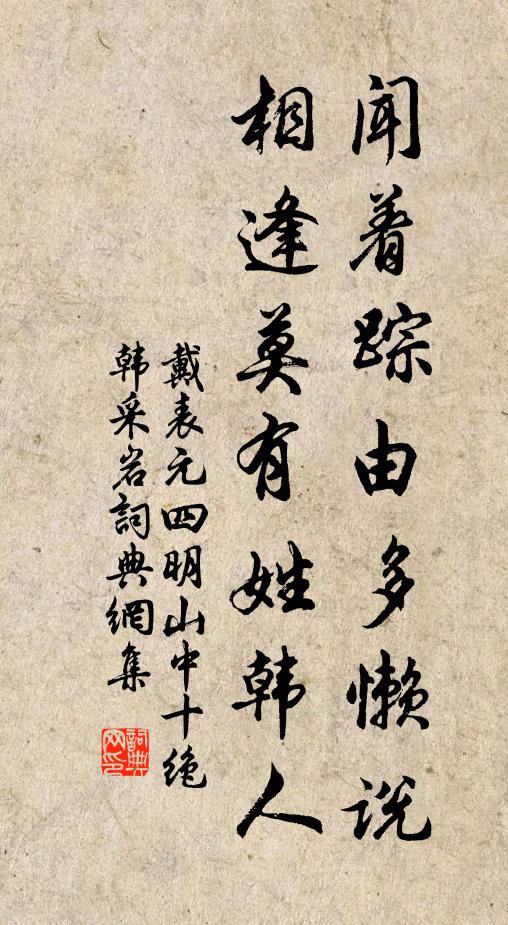 闻着踪由多懒说
相逢莫有姓韩人
戴表元四明山中十绝
韩采岩詞典網集
詞典
网印